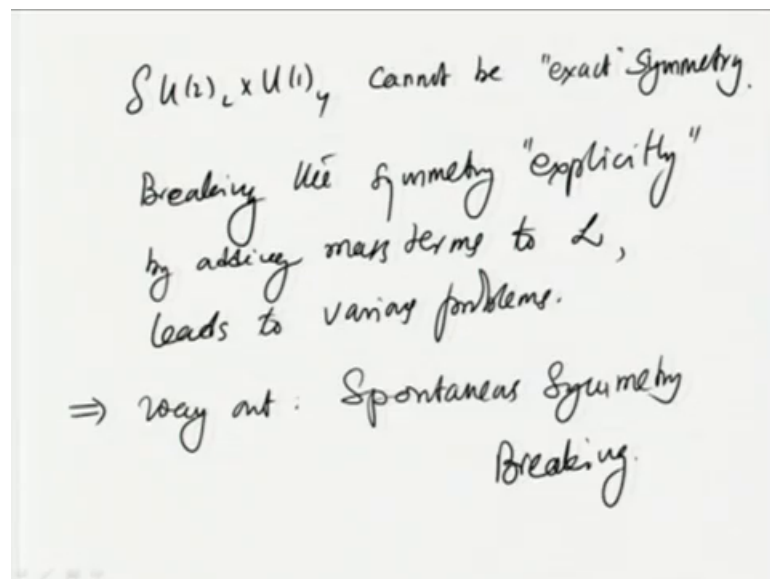 SU(2)_L × U(1)_Y Cannot be "exact" Symmetry.
Breaking the symmetry "explicitly"
by adding mass terms to L,
leads to various problems.
⇒ way out : Spontaneous Symmetry
Breaking.